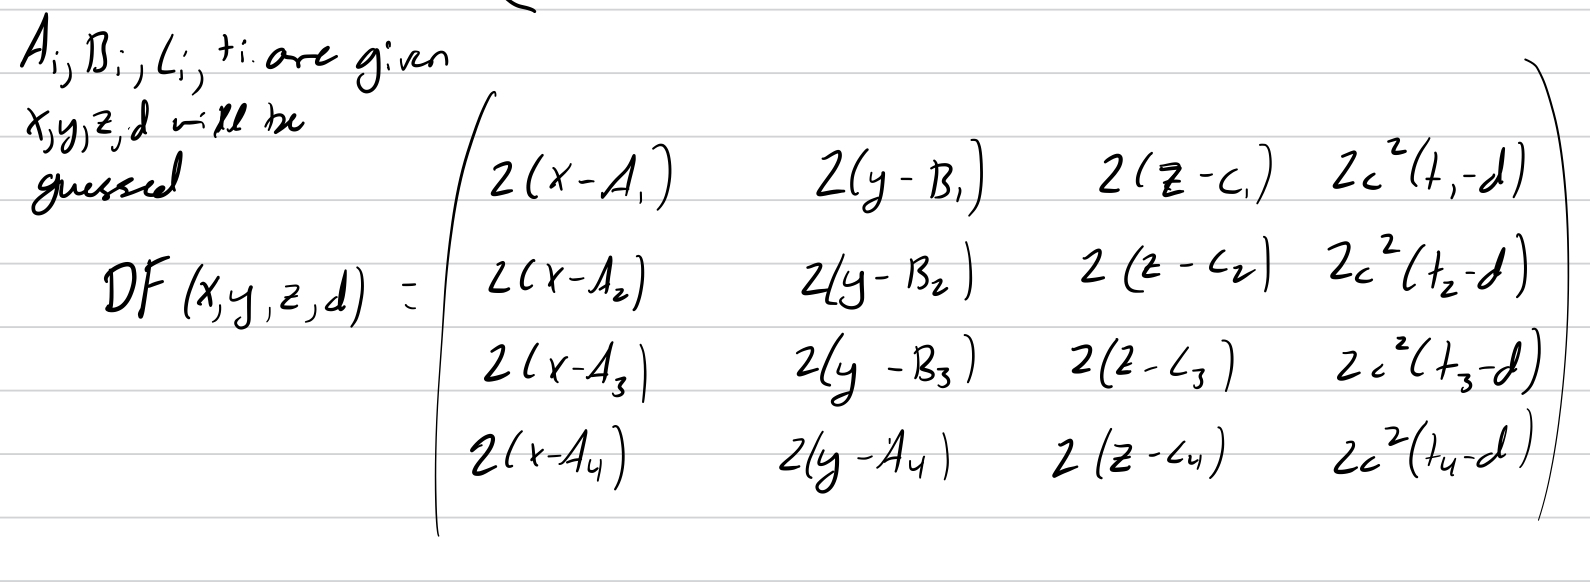 Ai, Bi, Ci, ti are given
x, y, z, d will be
guessed
2(x-A₁) 2(y-B₁) 2(z-C₁) 2c²(t₁-d)
DF(x,y,z,d) = 2(x-A₂) 2(y-B₂) 2(z-C₂) 2c²(t₂-d)
2(x-A₃) 2(y-B₃) 2(z-C₃) 2c²(t₃-d)
2(x-A₄) 2(y-A₄) 2(z-C₄) 2c²(t₄-d)